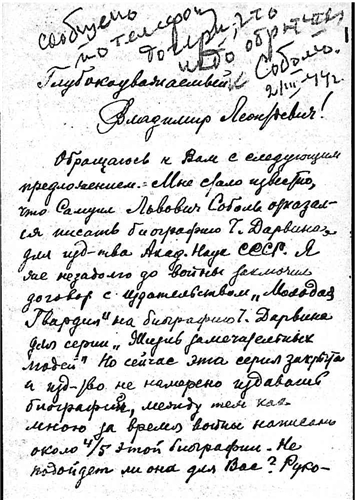 сообщено
по телефону
дочери, что
надо обратиться
к Соболю.
2/III-44 г.
Глубокоуважаемый
Владимир Леонтьевич!
Обращаюсь к Вам с следующим
предложением. Мне стало известно,
что Самуил Львович Соболь отказал-
ся писать биографию Ч. Дарвина
для изд-тва Акад. Наук СССР. Я
же незадолго до войны заключил
договор с издательством „Молодая
Гвардия" на биографию Ч. Дарвина
для серии „Жизнь замечательных
людей". Но сейчас эта серия закрыта
и изд-тво не намерено издавать
биографий, между тем как
мною за время войны написано
около 4/5 этой биографии. Не
подойдет ли она для Вас? Руко-